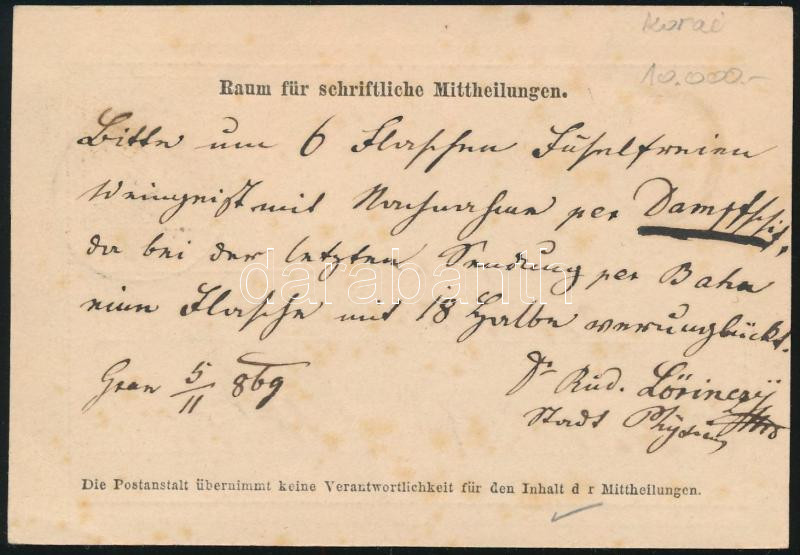 Korai
10.000.-
Raum für schriftliche Mittheilungen.
Bitte um 6 Flaschen Füselfreien
Weingeist mit Nachnahme per Dampfschif,
da bei der letzten Sendung per Bahn
eine Flasche mit 18 Halbe verunglückt.
Gran 5/11 869
Dr Rud. Lörinczy
Stadt
darabanth
Die Postanstalt übernimmt keine Verantwortlichkeit für den Inhalt d r Mittheilungen.